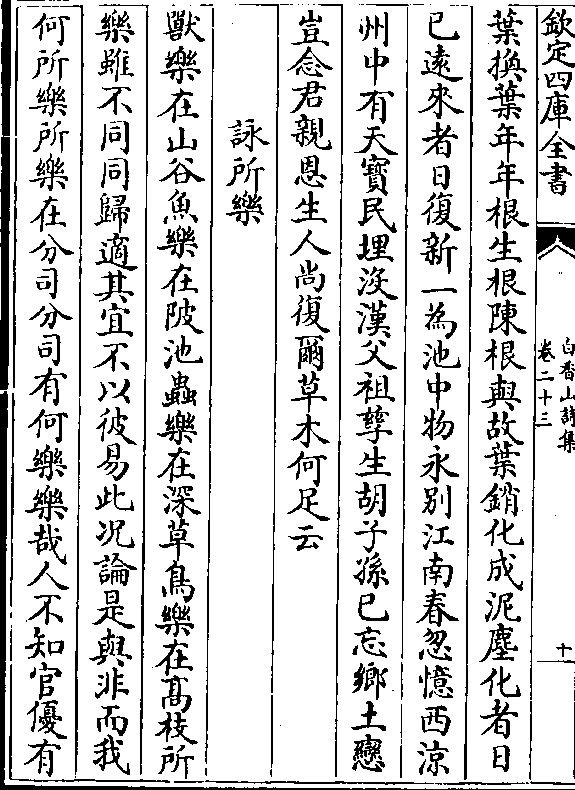 欽定四庫全書
白香山詩集
卷二十三
十
葉換葉年年根生根陳根與故葉銷化成泥塵化者日
已遠來者日復新一為池中物永别江南春忽憶西涼
州中有天寳民埋沒漢父祖孳生胡子孫已忘鄉土戀
豈念君親恩生人尚復爾草木何足云
詠所樂
獸樂在山谷魚樂在陂池蟲樂在深草鳥樂在髙枝所
樂雖不同同歸適其宜不以彼易此况論是與非而我
何所樂所樂在分司分司有何樂樂哉人不知官優有